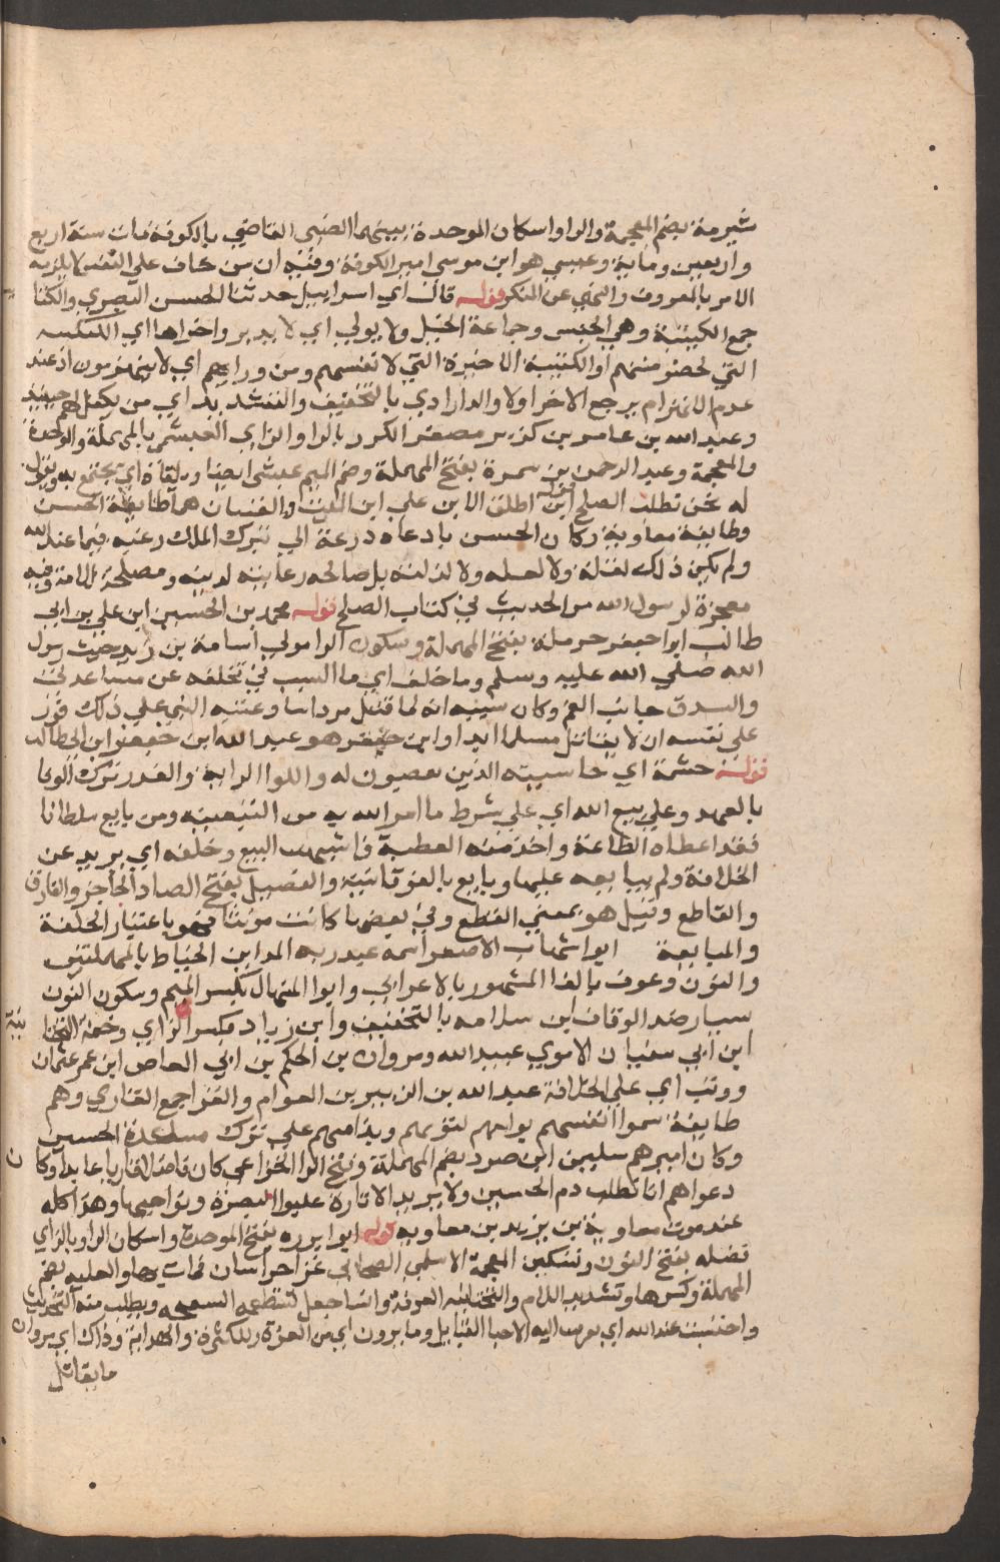 شبرمة بضم المعجمة والراء واسكان الموحدة بينهما الضبي القاضي بالكوفة مات سنة اربع
واربعين وماية وعيسي هو ابن موسي امير الكوفة وفيه ان من خاف علي النفس لا يلزمه
الامر بالمعروف والنهي عن المنكر قوله قال اي اسراييل حدثنا الحسن البصري والكتا
جمع الكتيبة وهي الجيش وجماعة الخيل ولا يولي اي لا يدبر واخراها اي الكتيبه
التي لخصومهم او الكتيبة الاخيرة التي لانفسهم ومن ورايهم اي لا ينهزمون اذ عند
عدم الانهزام يرجع الاخر اولا والدراري بالتخفيف والتشديد اي من يكفل لهم حينيذ
وعبد الله بن عامر بن كريز مصغر الكرز بالراء والزاي العبشمي بالمهملة والموحدة
والمعجمة وعبد الرحمن بن سمرة بفتح المهملة وضم الميم عبشمي ايضا ونلقاه اي نجتمع به ونقول
له نحن نطلب الصلح ابن اطلق الابن علي ابن البنت والفئتان هما طايفة الحسن
وطايفة معاوية وكان الحسن يا دعاه ورعه الي ترك الملك رغبة فيما عند الله
ولم يكن ذلك لقلة ولا لعله ولا لذلة بل صالحه رعاية لدينه ومصلحة للامة وفيه
معجزة لرسول الله مر الحديث في كتاب الصلح قوله محمد بن الحسين ابن علي بن ابي
طالب ابو جعفر حرملة بفتح المهملة وسكون الراء مولي اسامة بن زيد حب رسول
الله صلي الله عليه وسلم وما خلف اي ما السبب في تخلفه عن مساعدتي
والشدق جانب الفم وكان سببه انه لما قتل مرداسا وعتبه النبي علي ذلك قرر
علي نفسه ان لا يقاتل مسلما ابدا وابن جعفر هو عبد الله ابن جعفر ابن ابي طالب
قوله حشمة اي حاشيته الذين يغضبون له واللواء الراية والغدر ترك الوفا
بالعهد وعلي بيع الله اي علي شرط ما امر الله به من البيعة ومن بايع سلطانا
فقد اعطاه الطاعة واخذ منه العطية فاشبهت البيع وخلفه اي يريد عن
الخلافة ولم يبايعه عليها وبايع بالفوقانية والفيصل بفتح الصاد الحاجز والفارق
والقاطع وقيل هو بمعني القطع وفي بعضها كانت مؤنثا فهو باعتبار الخلفة
والمبايعة ابو شهاب الاصغر اسمه عبد ربه المداين الحناط بالمهملتين
والنون وعوف بالفا المشهور بالاعرابي وابو المنهال بكسر الميم وسكون النون
سيار ضد الوقاف ابن سلامه بالتخفيف وابن زياد بكسر الزاي وخفة التحتا نية
ابن ابي سفيان الاموي عبيد الله ومروان بن الحكم بن ابي العاص ابن عم عثمان
ووثب اي علي الخلافة عبد الله بن الزبير بن العوام والقرا جمع القاري وهم
طايفة سموا انفسهم توابين لتوبتهم وندامتهم علي ترك مساعدة الحسين
وكان اميرهم سليمن ابن صرد بضم المهملة وفتح الراء الخزاعي كان فاضلا قاريا عابدا وكان
دعواهم انا نطلب دم الحسين ولا يريد الامارة غلبوا البصرة ونواحيها وهذا كله
عند موت معاوية بن يزيد بن معاوية قوله ابو برزه بفتح الموحدة واسكان الراء وبالزاي
نضله بفتح النون وتسكين المعجمة الاسلمي الصحابي غزا خراسان فمات بها والعلية بضم
المهملة وكسرها وتشديد اللام والتحتانيه الغرفة وانشا جعل يستطعمه السمعه ويطلب منه التحديث
واحتسبت عند الله اي تقربت اليه الاحياء القبايل وما يرون اي من العزة والكثرة والهداية وذاك اي مروان
ما يقاتل